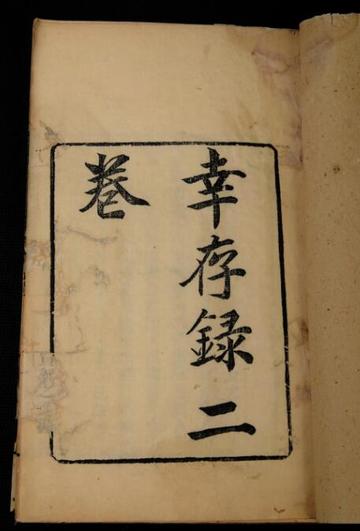 幸存録二
卷